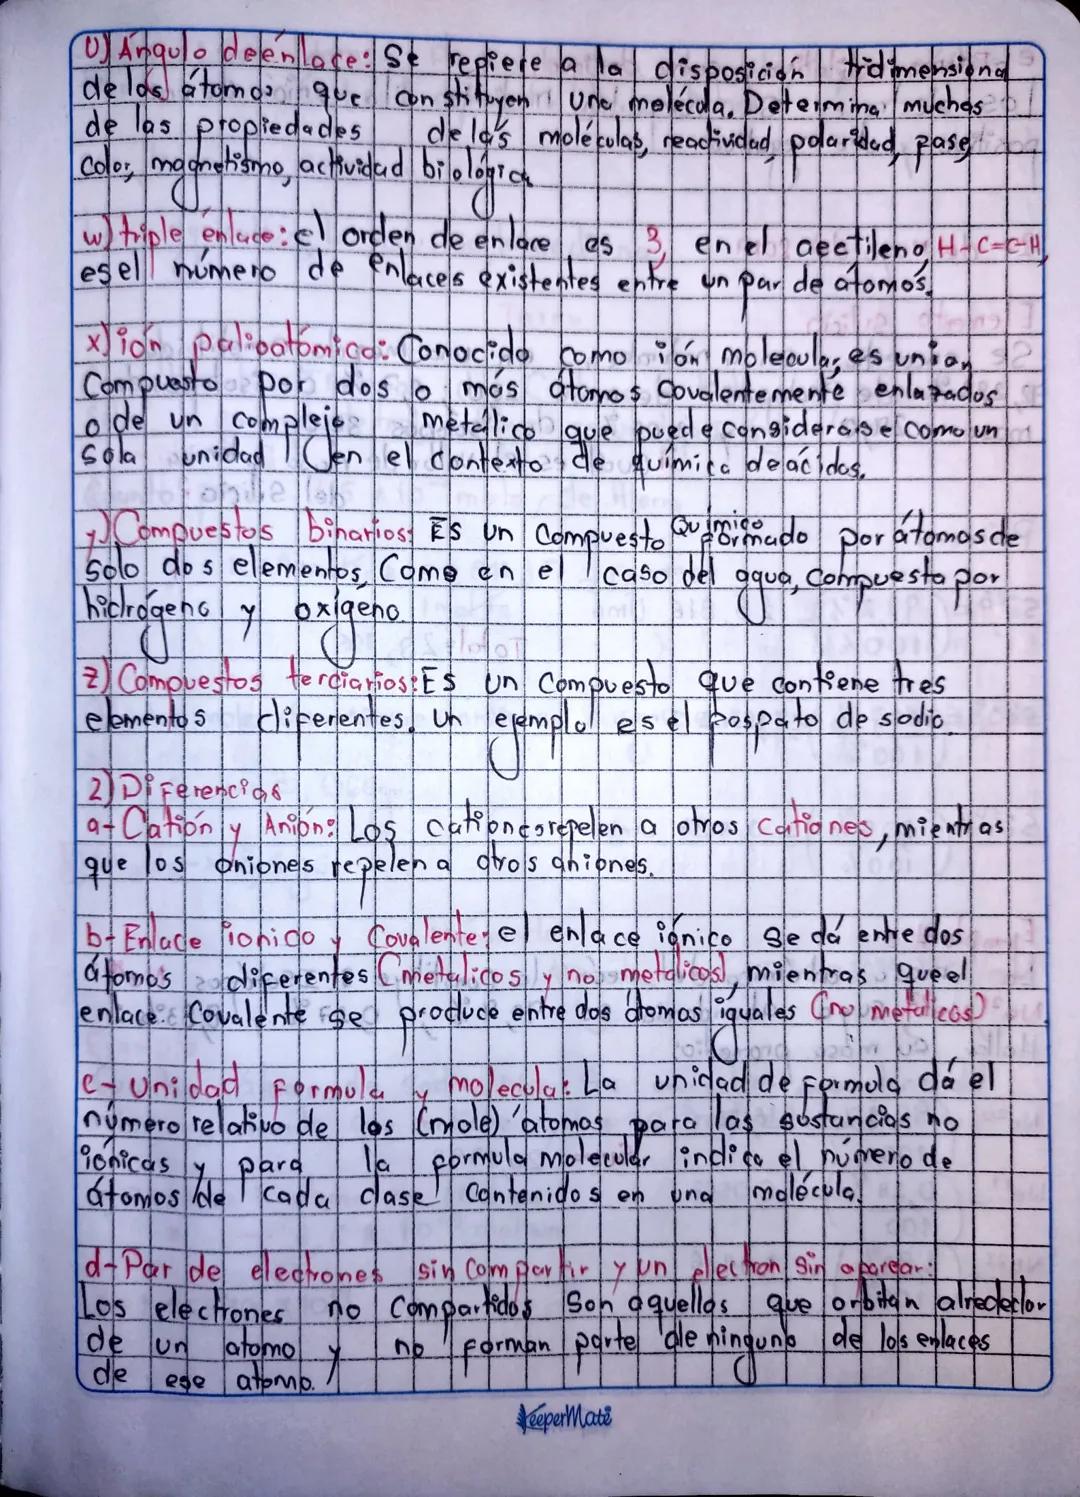 U) Ángulo de énlace: Se repiere a la disposición tridimensional
de los átomos que constituyen una molécula. Determina muchas
de las propiedades de las moléculas, reactividad, polaridad, pase,
color, magnetismo, actividad biológica
w) triple énlace: el orden de enlace es 3, en el aectileno, H-C=C-H,
es ell número de enlaces existentes entre un par de átomos.
x) ión palioatómico: Conocido como ión molecular, es un ion
Compuesto por dos o más átomos Covalentemente enlazados
o de un complejo metálico que puede considerarse como un
sola unidad (en el contexto de química de ácidos.
y) Compuestos binarios: Es un compuesto Químico formado por átomos de
solo dos elementos, Como en el caso del agua, compuesta por
hidrógeno y oxígeno
z) Compuestos terciarios: Es un compuesto que contiene tres
elementos diferentes. un ejemplo es el pospato de sodio.
2) Diferencias
a- Catión y Anión: Los cationes repelen a otros cationes, mientras
que los aniones repelen a otros aniones.
b- Enlace ionico y Covalente: el enlace iónico se dá entre dos
átomos diferentes (metalicos y no metalicos), mientras que el
enlace Covalente se produce entre dos átomos iguales (no metalicos)
c- Unidad Formula y molecula: La unidad de formula dá el
número relativo de los (mole) átomos para las sustancias no
iónicas y para la formula molecular indica el número de
átomos de cada clase contenidos en una molécula.
d- Par de electrones sin compartir y un electron sin aparear:
Los electrones no compartidos son aquellos que orbitan alrededor
de un atomo y no forman parte de ninguno de los enlaces
de ese atomo.
KeeperMate